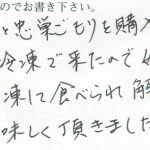 のでお書き下さい。
と忠巣ごもりを購入
冷凍で来たので
凍して食べられ解
味しく頂きました